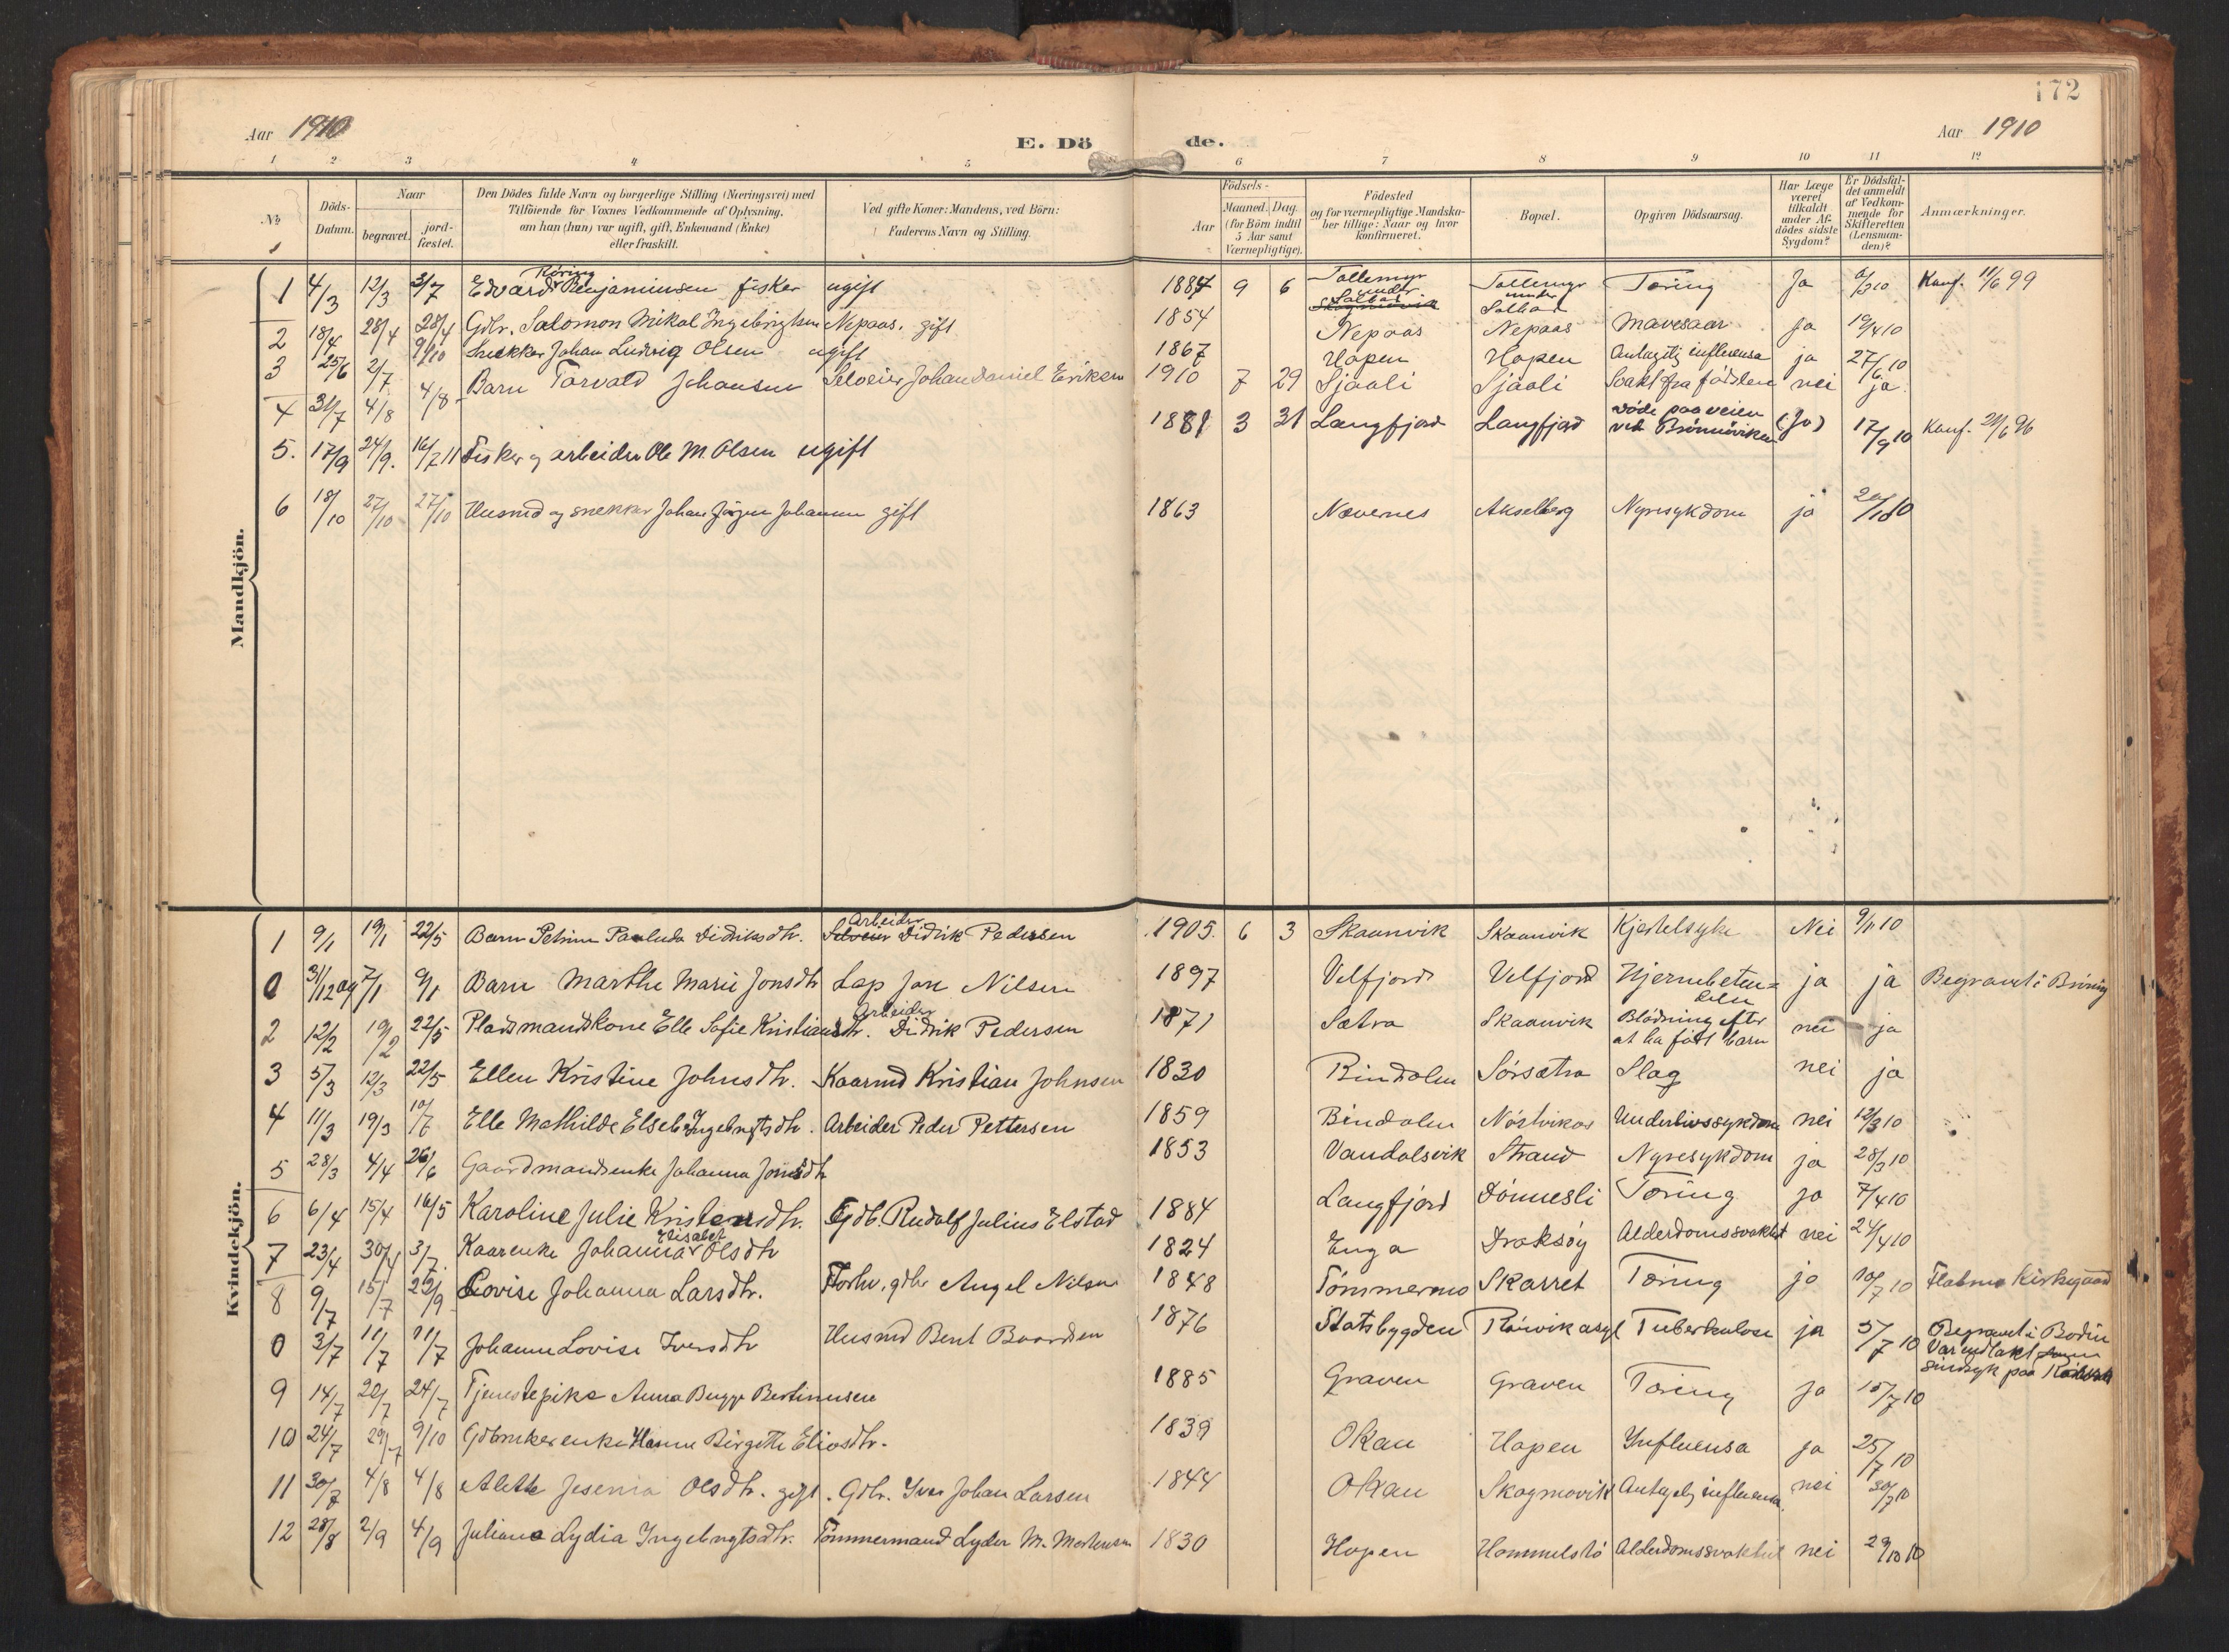 172
Aar 1910
E. Dö de.
Aar 1910
1 2 3 4 5 6 7 8 9 10 11 12
No
Döds-Datum.
Naar
begravet.
jord-fæstet.
Den Dödes fulde Navn og borgerlige Stilling (Næringsvei) med
Tilföiende for Voxnes Vedkommende af Oplysning,
om han (hun) var ugift, gift, Enkemand (Enke)
eller fraskilt.
Ved gifte Koner: Mandens, ved Börn:
Faderens Navn og Stilling.
Födsels-
Aar
Maaned. Dag.
(for Börn indtil
5 Aar samt
Værnepligtige).
Födested
og for værnepligtige Mandska-
ber tillige: Naar og hvor
konfirmeret.
Bopæl.
Opgiven Dödsaarsag.
Har Læge
været
tilkaldt
under Af-
dödes sidste
Sygdom?
Er Dödsfal-
det anmeldt
af Vedkom-
mende for
Skifteretten
(Lensman-
den)?
Anmærkninger.
Mandkjön.
1 4/3 12/3 3/7 Edvard Köring Benjaminsen fisker ugift 1884 9 6 Tollemyr under Salhus Tollemyr under Tæring Ja Konf. 11/6 99
2 18/4 28/4 28/4 Gdbr. Salomon Mikal Ingebrigtsen Nepaas. gift 1854 Nepaas Nepaas Mavesaar ja 19/4 10
3 25/6 2/7 9/10 Snekker Johan Ludvig Olsen ugift 1867 Hopen Hopen Antagelig influensa ja 27/6 10
4 31/7 4/8 4/8 Barn Torvald Johansen Selveier Johan Daniel Eriksen 1910 7 29 Sjaali Sjaali Svakt fra födslen nei ja
5. 17/9 24/9. 16/7 11 Fisker og arbeider Ole M. Olsen ugift 1881 3 31 Langfjord Langfjord döde paa veien ved Brönnöviken (Ja) 17/9 10 Konf. 21/6 96
6 18/10 27/10 27/10 Husmd og snekker Johan Jörgen Johansen gift 1863 Nævernes Akselberg Nyresykdom ja 20/10 10
Kvindekjön.
1 9/1 19/1 22/5 Barn Petrine Paulida Didriksdtr. Selveier Arbeider Didrik Pedersen 1905. 6 3 Skaanvik Skaanvik Kjertelsyke Nei 9/1 10
0 31/12 09 7/1 9/1 Barn Marthe Marie Jonsdtr Lap Jon Nilsen 1897 Velfjord Velfjord Hjernebeten=delse ja ja Begravet i Brönnö
2 12/2 19/2 22/5 Pladsmandskone Elle Sofie Kristiansdtr. Arbeider Didrik Pedersen 1871 Sætra Skaanvik Blödning efter at ha födt barn nei ja
3 5/3 12/3 22/5 Ellen Kristine Johnsdtr. Kaarmd Kristian Johnsen 1830 Bindalen Sörsætra Slag nei ja
4 11/3 19/3 10/7 Elle Mathilde Elseb. Ingebrigtsdtr. Arbeider Peder Pettersen 1859 Bindalen Nöstvikas Underlivssykdom nei 12/3 10
5 28/3 4/4 26/6 Gaardmandsenke Johanna Jonsdtr 1853 Vandalsvik Strand Nyresykdom ja 28/3 10
6 6/4 15/4 16/5 Karoline Julie Kristensdtr. Gdb. Rudolf Julius Elstad 1884 Langfjord Dönnesli Tæring ja 7/4 10
7 23/4 30/4 3/7. Kaarenke Johanna Elisabet Olsdtr 1824 Enga Draksöy Alderdomssvakhet nei 24/4 10
8 9/7 15/7 Lovise Johanna Larsdtr. Forhv. gdbr Angel Nilsen 1848 Tömmermo Skarret Tæring ja 10/7 10 Kirkegaard
0 3/7 11/7 11/7 Johanne Lovise Iversdtr Husmd Bent Baardsen 1876 Statsbygden Rörvik asyl Tuberkulose ja 5/7 10 Begravet i Bodin Var indlakt som sindsyk paa Rörvik
9 14/7 20/7 24/7 Tjenestepike Anna Bugge Bertinusen 1885 Graven Graven Tæring ja 15/7 10
10 24/7 29/7 9/10 Gdbrukerenke Hanna Birgitte Eliasdtr. 1839 Okan Hopen Influensa ja 25/7 10
11 30/7 4/8 4/8 Alette Jesenia Olsdtr. gift. Gdbr. Iver Johan Larsen 1844 Okan Skogmovik Antagelig influensa nei 30/7 10
12 28/8 2/9 4/9 Juliane Lydia Ingebrigtsdtr. Tömmermand Lyder M. Mortensen 1830 Hopen Hommelstö Alderdomssvakhet nei 29/10 10